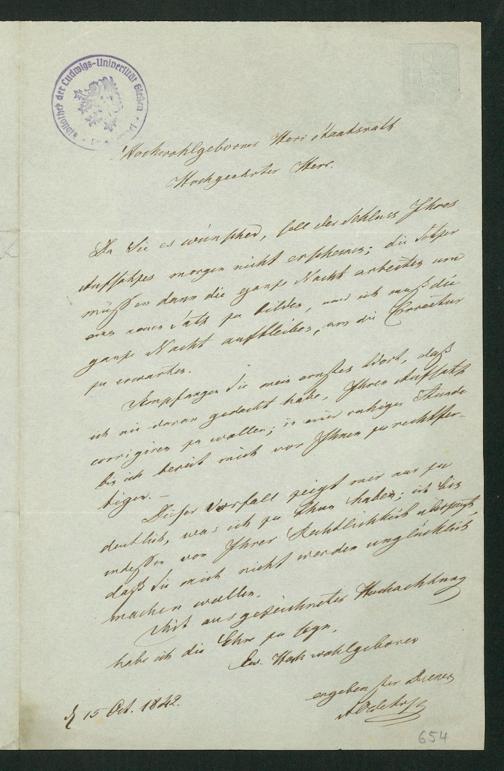 Bibliothek der Ludwigs-Universität Gießen
Hochwohlgeborner Herr Staatsrath
Hochgeehrter Herr.
Da Sie es wünschen, soll der Schluss Ihres
Aufsatzes morgen nicht erscheinen; die Setzer
müssen dann die ganze Nacht arbeiten um
einen neuen Satz zu bilden, und ich muß die
ganze Nacht aufbleiben, um die Correctur
zu erwarten.
Empfangen Sie mein ernstes Wort, daß
ich nie daran gedacht habe, Ihren Aufsatz
corrigiren zu wollen; in einer ruhigen Stunde
bin ich bereit mich vor Ihnen zu rechtfer-
tigen. —
Dieser Vorfall zeigt mir nur zu
deutlich, was ich zu thun habe; ich bin
indessen von Ihrer Rechtlichkeit überzeugt,
daß Sie mich nicht werden unglücklich
machen wollen.
Mit ausgezeichneter Hochachtung
habe ich die Ehre zu seyn,
Ew. Hochwohlgeboren
ergebenster Diener
15 Oct. 1842.
654